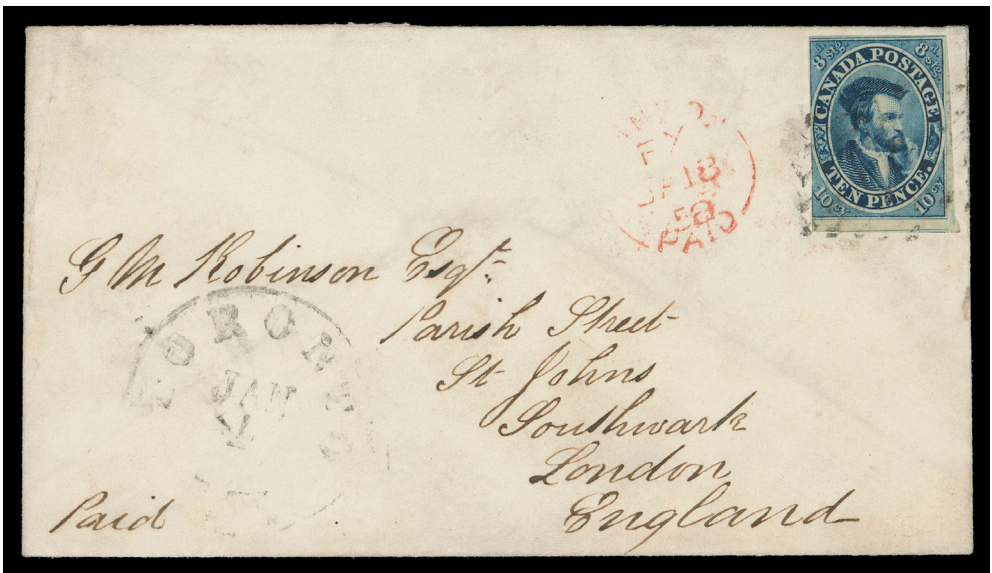 8d stg. 8d stg.
CANADA POSTAGE
TEN PENCE.
10 cy. 10 cy.
18
58
PAID
G M Robinson Esqr.
Parish Street
St Johns
Southwark
London
England
TORONTO
JAN
Paid